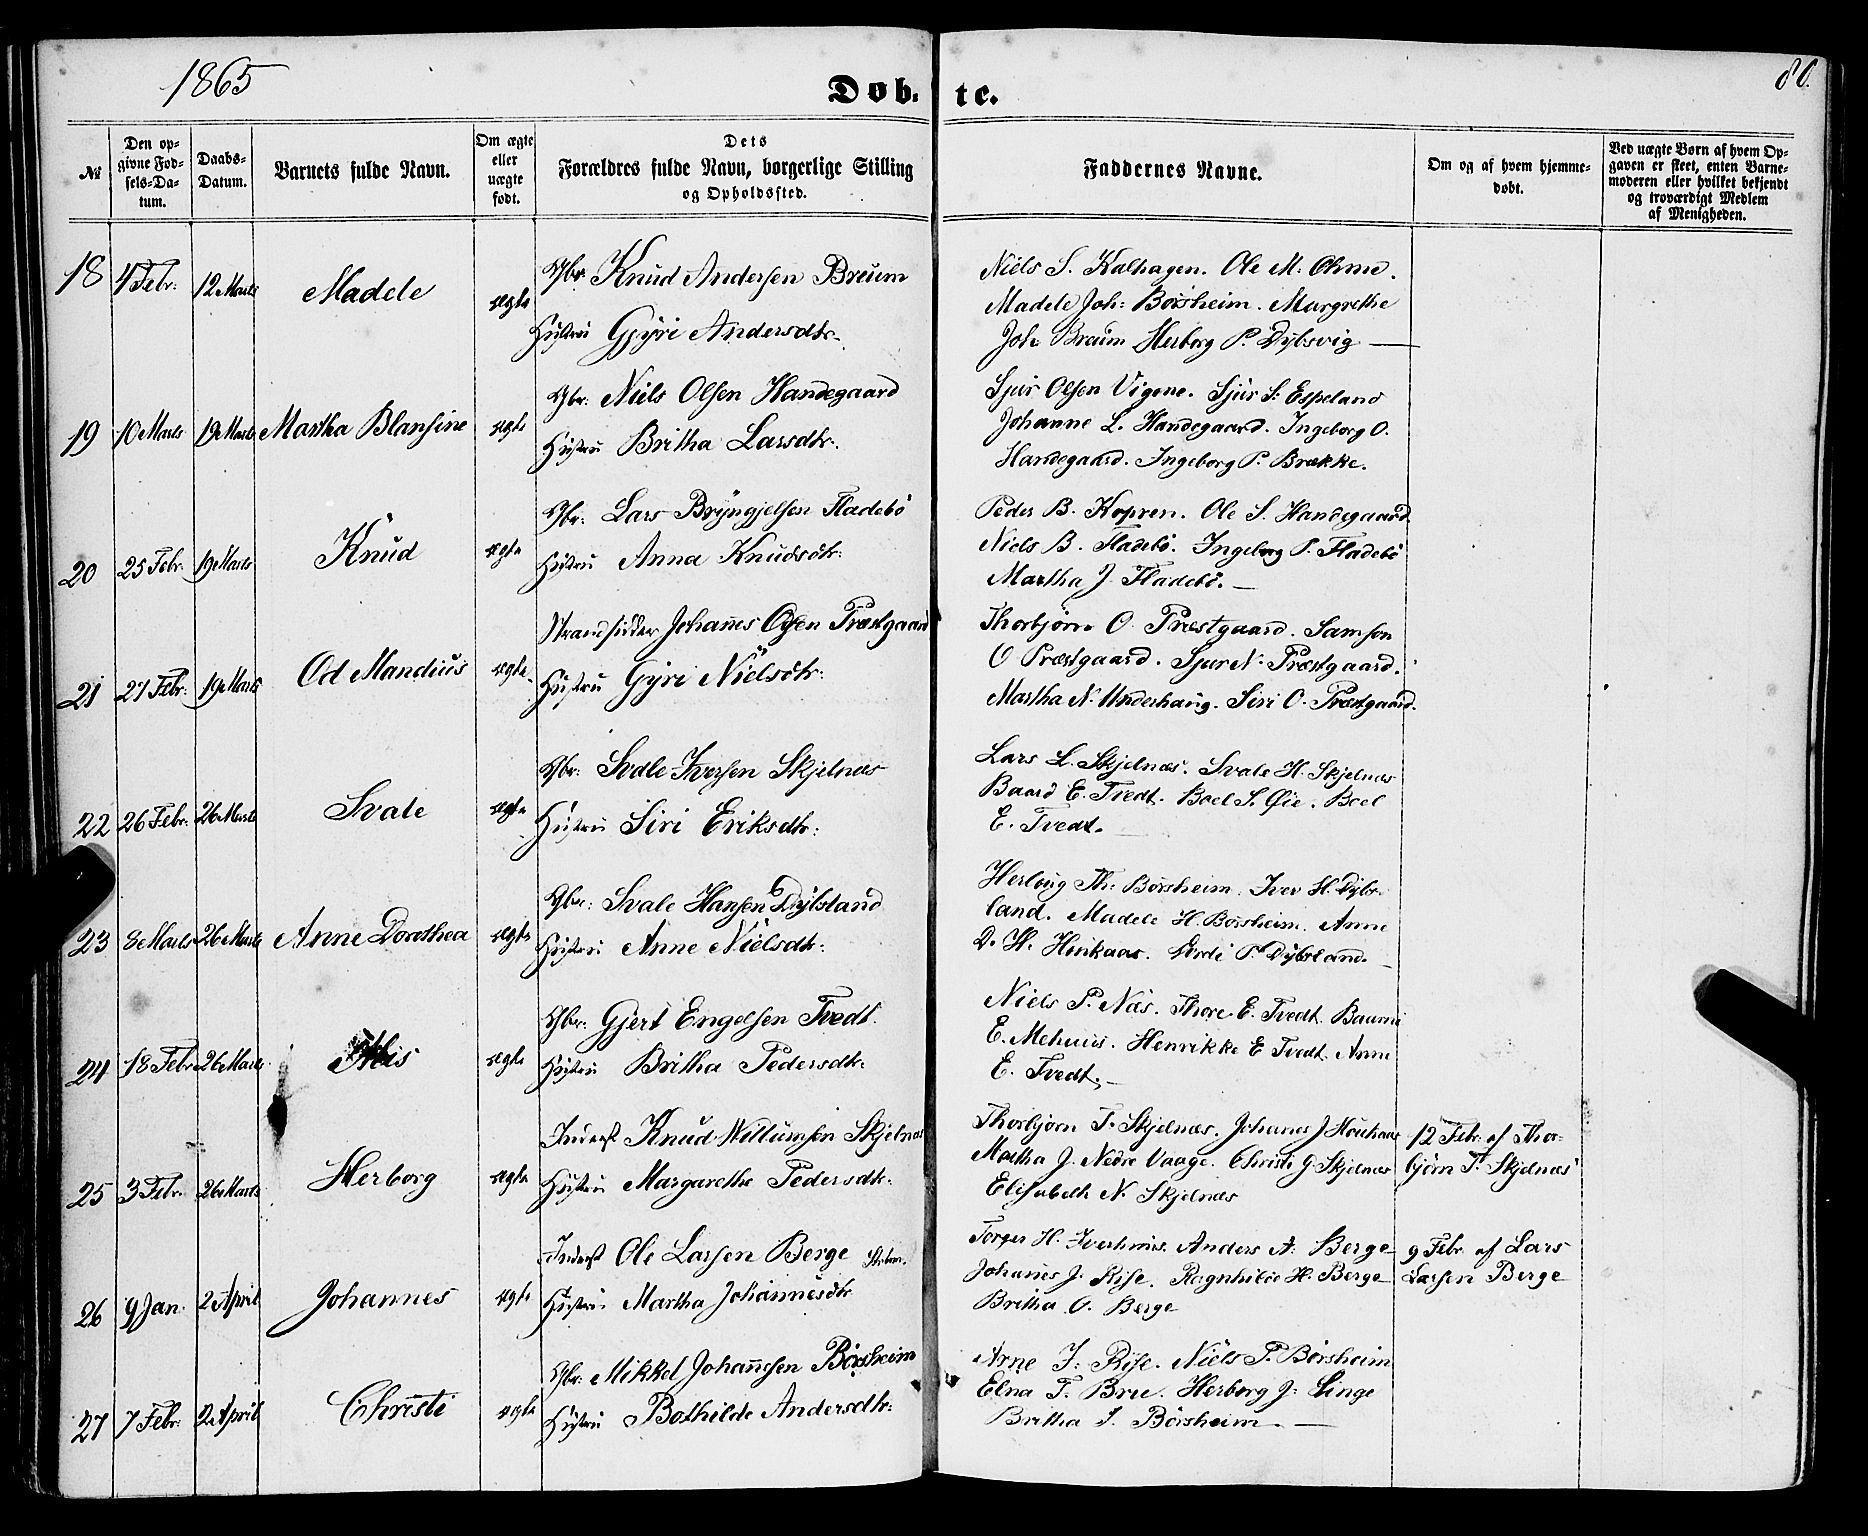 1865
Døb-te.
80.
№
Den op-
givne Fød-
sels-Da-
tum.
Daabs-
Datum.
Barnets fulde Navn.
Om ægte
eller
uægte
født.
Dets
Forældres fulde Navn, borgerlige Stilling
og Opholdssted.
Faddernes Navne.
Om og af hvem hjemme-
døbt.
Ved uægte Børn af hvem Op-
gaven er skeet, enten Barne-
moderen eller hvilket bekjendt
og troværdigt Medlem
af Menigheden.
18 4 Febr. 12 Marts Madele ægte
Gbr. Knud Andersen Breum
Hustru Gjyri Andersdtr.
Niels S. Kalhagen. Ole M. Ohme.
Madele Joh: Börsheim. Margrethe
Joh. Breum Herborg P. Dybsvig
19 10 Marts 19 Marts Martha Blansine ægte
Gbr: Niels Olsen Handegaard
Hustru Britha Larsdtr.
Sjur Olsen Vigene. Sjur S. Espeland
Johanne L. Handegaard. Ingeborg O.
Handegaard. Ingeborg P. Brække.
20 25 Febr. 19 Marts Knud ægte
Gbr: Lars Bryngjelsen Fladebö
Hustru Anna Knudsdtr:
Peder B. Kopren. Ole S. Handegaard
Niels B. Fladebö. Ingeborg P. Fladebö
Martha J. Fladebö.
21 27 Febr. 19 Marts Od Mandius ægte
Strandsidder Johannes Olsen Præstgaard
Hustru Gyri Nielsdtr:
Thorbjørn O. Præstgaard. Samson
O Præstgaard. Sjur N. Præstgaard.
Martha N. Underhaug. Siri O. Præstgaard.
22 26 Febr. 26 Marts Svale ægte
Gbr: Svale Iversen Skjelnæs
Hustru Siri Eriksdtr:
Lars L. Skjelnæs. Svale H. Skjelnæs
Baard E. Tvedt. Boel S. Øie. Boel
E. Tvedt.
23 8 Marts 26 Marts Anne Dorothea ægte
Gbr: Svale Hansen Dybsland
Hustru Anne Nielsdtr:
Herloug Th: Börsheim. Iver H. Dybs-
land. Madele H. Börsheim. Anne
D. H. Dybsland.
24 18 Febr. 26 Marts ægte
Gbr: Gjert Engelsen Tvedt.
Hustru Britha Pedersdtr.
Niels P. Næs. Thore E. Tvedt.
E. Mehuus. Henrikke E Tvedt. Anne
E. Tvedt.
25 3 Febr. 26 Marts Herborg ægte
Inderst Knud Willumsen Skjelnæs
Hustru Margarethe Pedersdtr.
Thorbjørn T. Skjelnæs. Johannes J
Martha J. Nedre Vaage. Christi G. Skjelnæs
Elisabeth N. Skjelnæs
12 Febr. af Thor-
bjørn T. Skjelnæs
26 9 Jan. 2 April Johannes ægte
Inderst Ole Larsen Berge
Hustru Martha Johannesdtr
Torger H. Anders A. Berge
Johannes J. Rise. Ragnhilde H. Berge
Britha O. Berge
9 Febr. af Lars
Larsen Berge
27 7 Febr. 2 April Christi ægte
Gbr: Mikkel Johannesen Börsheim
Hustru Bothilde Andersdtr:
Arne J. Rise. Niels P. Börsheim
Elna T. Brue. Herborg J. Linge
Britha J. Börsheim.